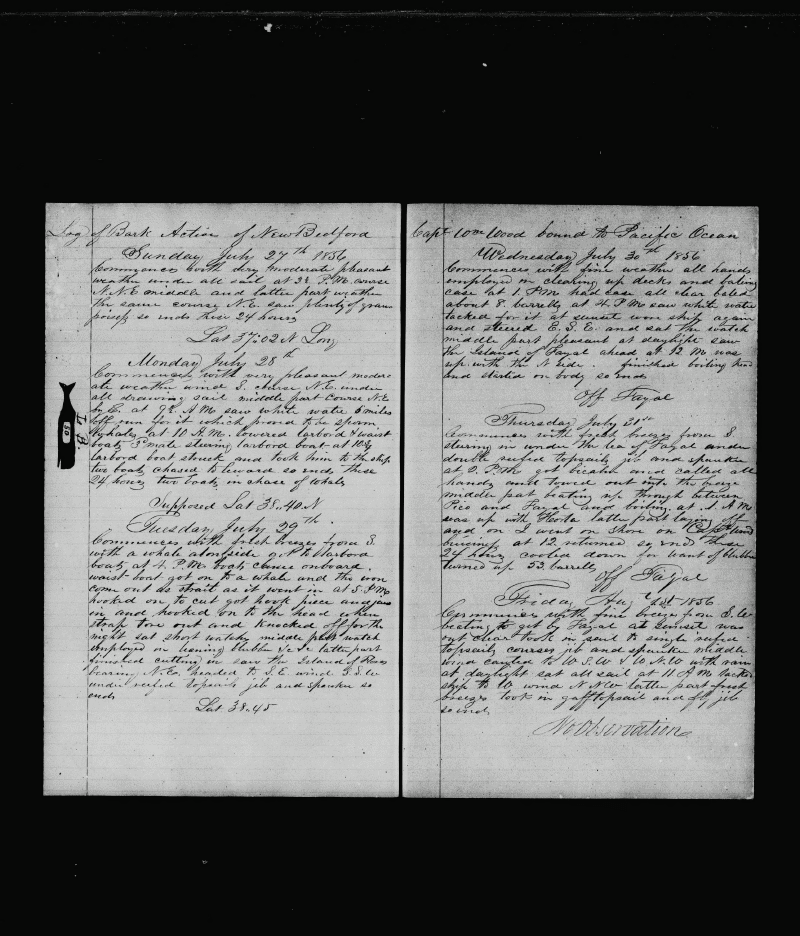 Log of Bark Active of New Bedford
Sunday July 27th 1856
Commences with very moderate pleasant
weather under all sail at 2 P.M. course
N.N.E middle and latter part weather
the same course N.E. saw plenty of gram
so ends these 24 hours
Lat 37:02 N Long
Monday July 28th
Commences with very pleasant moder
ate weather wind S. course N.E. under
all drawing sail middle part course N.E
by E. at A.M. saw white watie 6 miles
off run for it which proved to be sperm
Whales at 10 A.M. lowered larbord & waist
boats 3d mate steering larbord boat at 10½
larbord boat struck and took him to the ship
two boats chased to leward so ends these
24 hours two boats in chase of whales
L. B.
50
Supposed Lat 38.40 N
Tuesday July 29th
Commences with fresh breezes from S.
with a whale alongside starbord
boats at 4 P.M. boats came onboard.
waist boat got on to a whale and the iron
come out as strait as it went in at 5 P.M.
hooked on to cut got hook piece and jaw
in and hooked on to the head when
strap tore out and knocked off for the
night sat short watches middle part watch
employed in leaning blubber &c &c latter part
finished cutting in saw the Island of
bearing N.E. headed to S.E. wind S.S.W
under reefed topsails jib and spanker so
ends
Lat 38.45
Capt Wm Wood bound to Pacific Ocean
Wednesday July 30th 1856
Commences with fine weather all hands
employed in clearing up decks and bailing
case at 1 P.M had case all clear baled
about 8 barrells at 4 P.M saw white watie
tacked for it at sunset wore ship again
and steered E.S.E. and sat the watch
middle part pleasant at daylight saw
the Island of Fayal ahead at 12 M was
up with the N side. finished boiling head
and started on body so ends
Off Fayal
Thursday July 31st
Commences with fresh breezes from S
steering in under the lea of Fayal under
double reefed topsails jib and spanker
at 2. P.M. got becalm and called all
hands and towed out into the breeze
middle part beating up through between
Pico and Fayal and boiling. at A M
was up with Horta latter part laying off
and on I went on shore on Capt
buisness at 12 returned so ends these
24 hours cooled down for want of blubber
turned up 52 barrells
Off Fayal
Friday Aug 1st 1856
Commences with fine breeze from S.W
beating to get by Fayal at sunset was
out clear took in sail to single reefed
topsails courses jib and spanker middle
wind canted to W.S.W & W.N.W with rain
at daylight sat all sail at 11 A M tacked
ship to W wind N N W latter part fresh
breezes took in gafftopsail and fly jib
so ends
No Observation